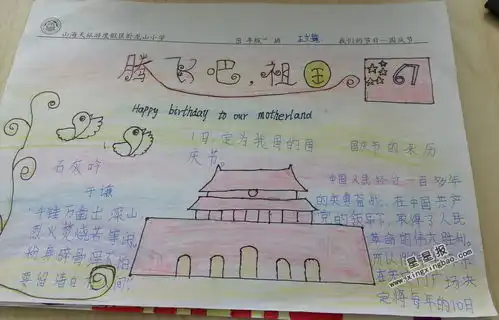 山海天旅游度假区卧龙山小学
我们的节日—国庆节
腾飞吧，祖国
67
Happy birthday to our motherland
1日，定为我国的国
庆节。
国庆节的来历
石灰吟
于谦
千锤万凿出深山
烈火焚烧若等闲
粉身碎骨浑不怕
要留清白
中国人民经过一百多年
的英勇奋战，在中国共产
党的领导下，取得了人民
革命的伟大胜利。
定将每年的10月
星星报
www.ixingxingbao.com